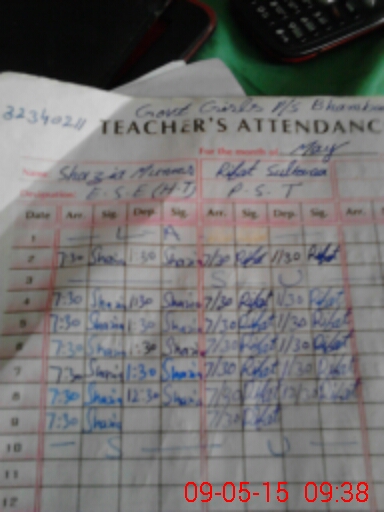 32340211 Govt Girls P/S
TEACHER'S ATTENDANC
For the month of May
Name: Shazia Rifat Sultana
Designation: E.S.E (H.T) P.S.T
Date Arr. Sig. Dep. Sig. Arr. Sig. Dep. Sig. Arr.
1 L A
2 7:30 Shazia 1:30 Shazia 7/30 Rifat 1/30 Rifat
3 S U
4 7:30 Shazia 1:30 Shazia 7/30 Rifat 1/30 Rifat
5 7:30 Shazia 1:30 Shazia 7/30 Rifat 1/30 Rifat
6 7:30 Shazia 1:30 Shazia 7/30 Rifat 1/30 Rifat
7 7:30 Shazia 1:30 Shazia 7/30 Rifat 1/30 Rifat
8 7:30 Shazia 12:30 Shazia 7/30 Rifat 12/30 Rifat
9 7:30 Shazia 7/30 Rifat
10 S U
11
12
09-05-15 09:38